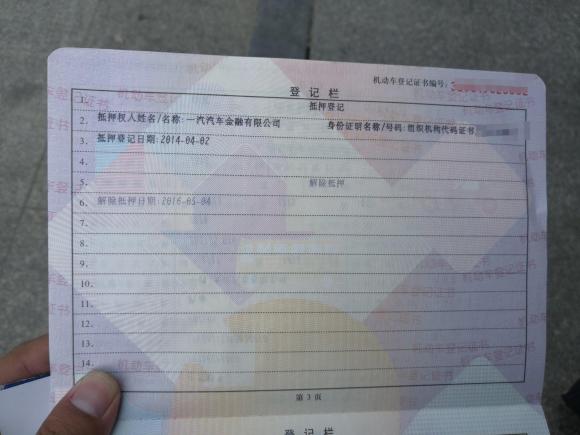 机动车登记证书编号:
登记栏
1. 抵押登记
2. 抵押权人姓名/名称:一汽汽车金融有限公司 身份证明名称/号码:组织机构代码证书
3. 抵押登记日期:2014-04-02
4.
5. 解除抵押
6. 解除抵押日期:2016-05-04
7.
8.
9.
10.
11.
12.
13.
14.
第3页
登记栏